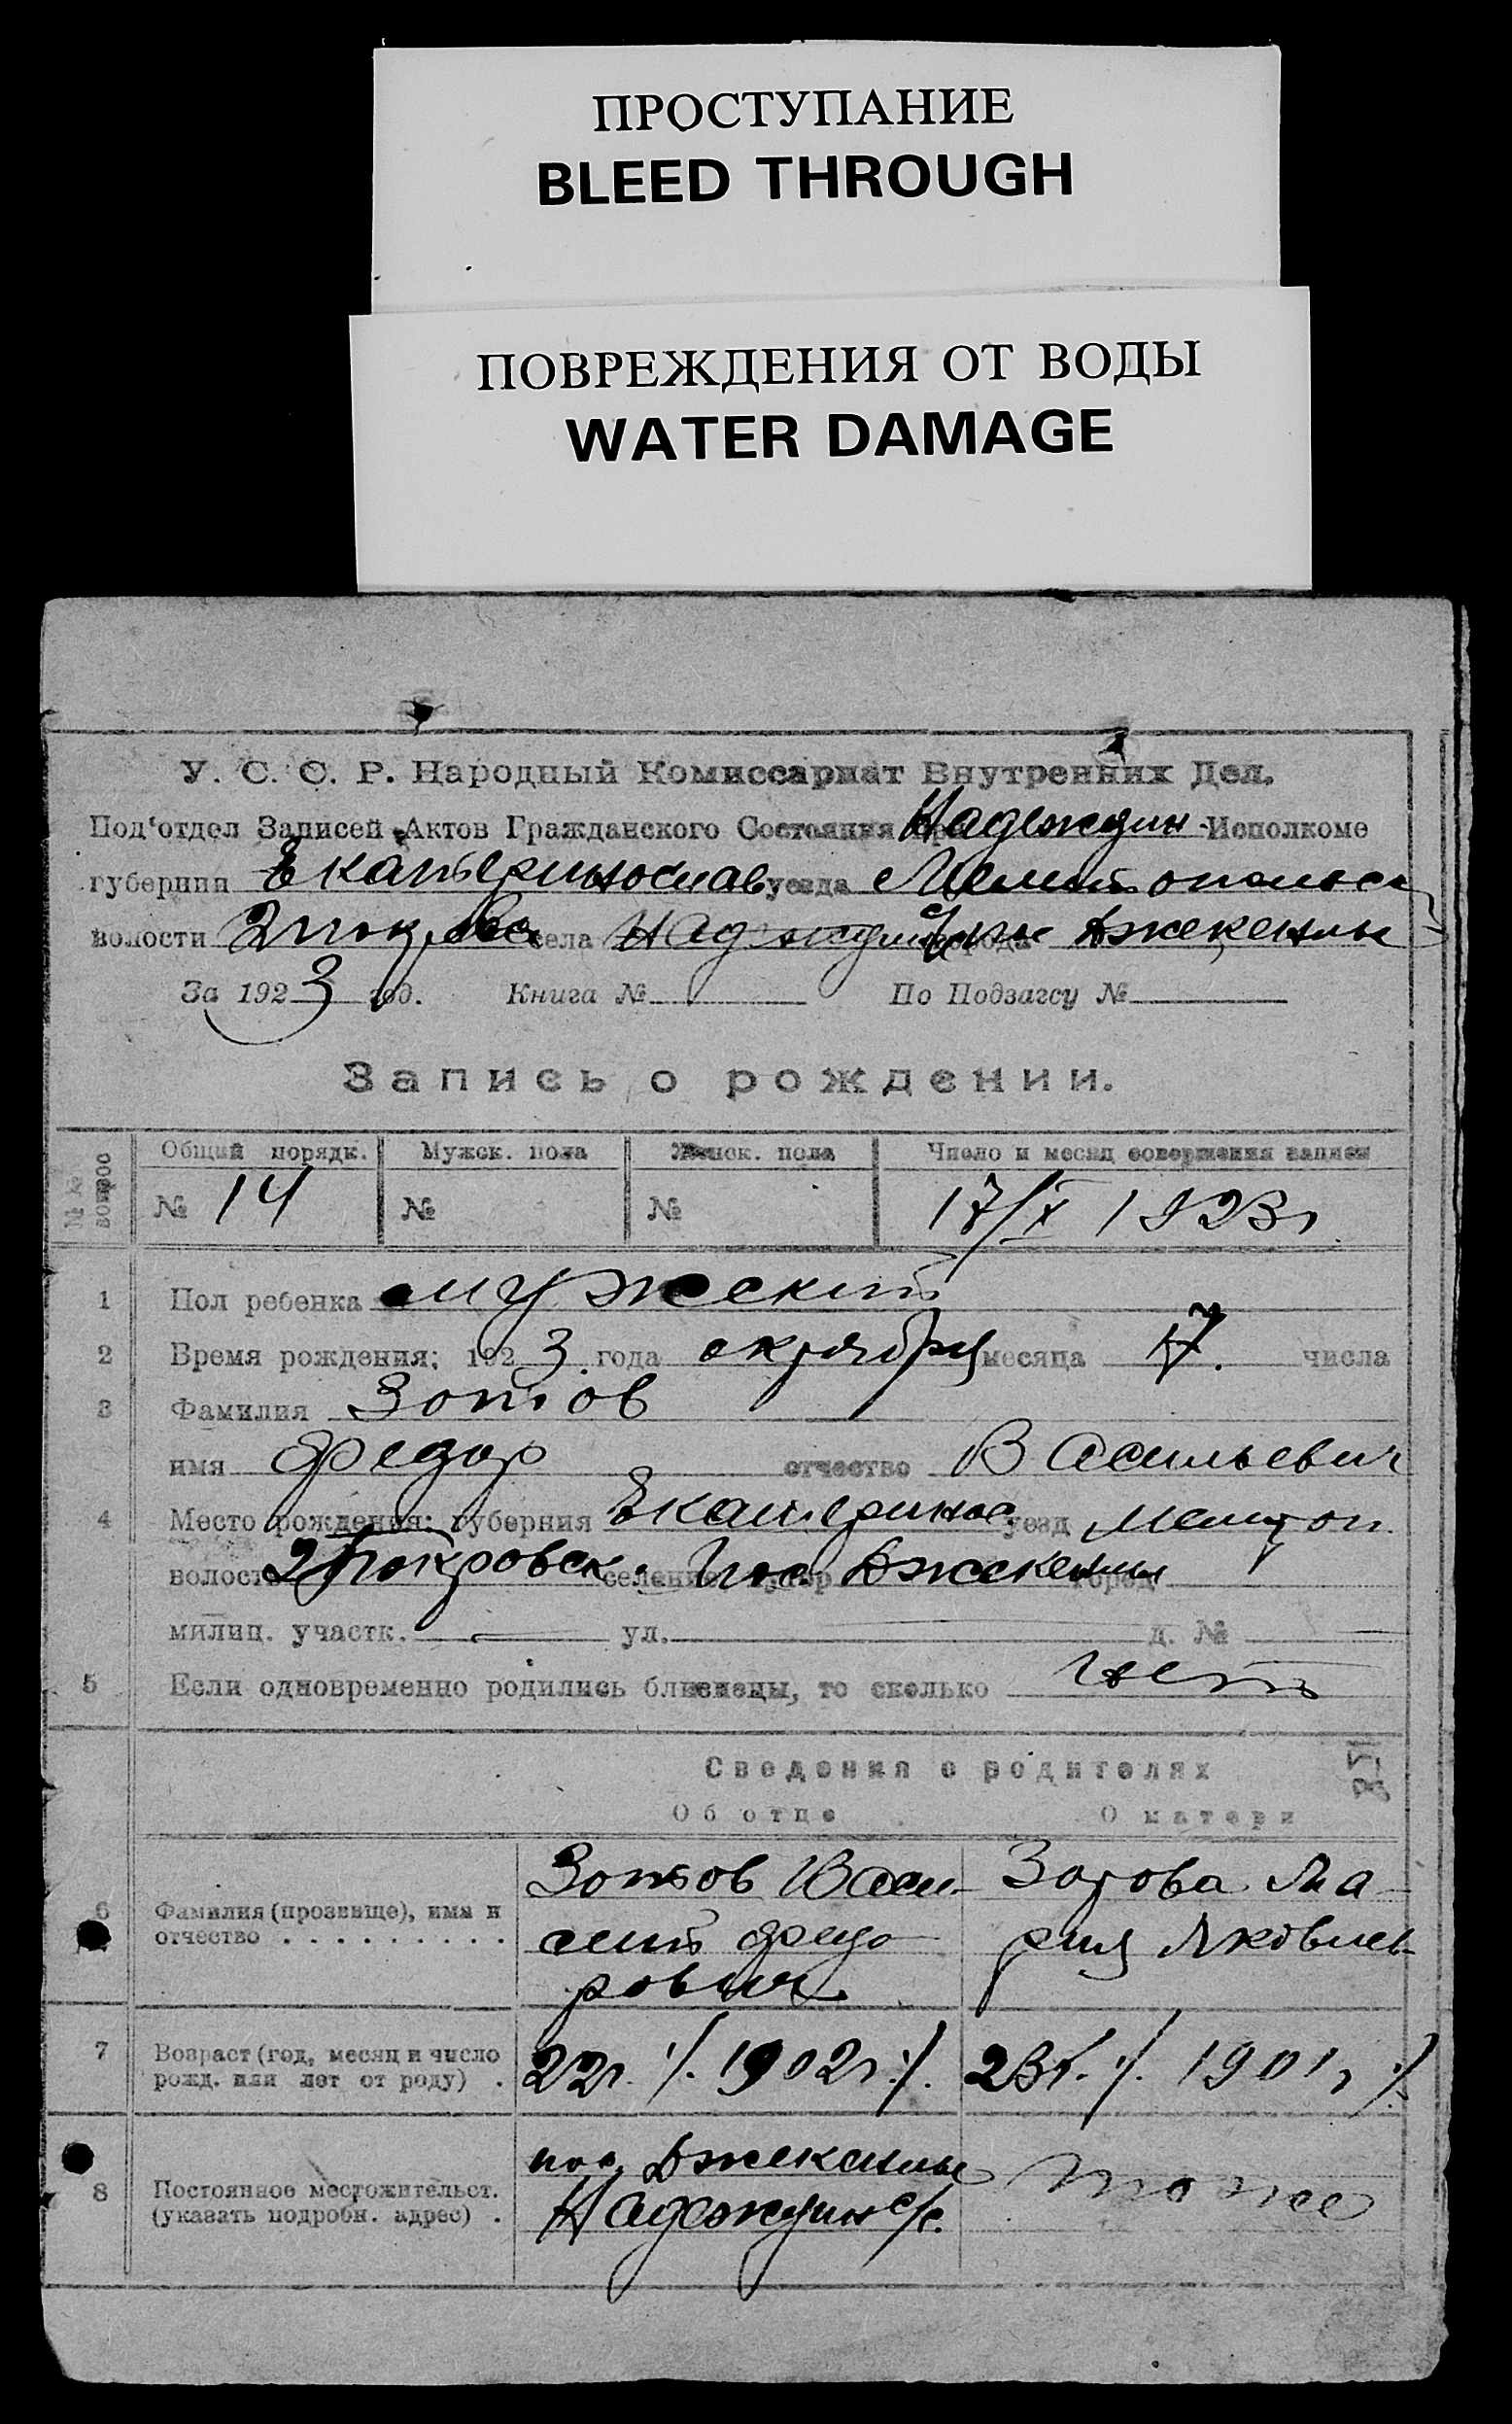 ПРОСТУПАНИЕ
BLEED THROUGH
ПОВРЕЖДЕНИЯ ОТ ВОДЫ
WATER DAMAGE
У. С. С. Р. Народный Комиссариат Внутренних Дел.
Под'отдел Записей Актов Гражданского Состояния при Надеждин. Исполкоме
губернии Екатеринослав уезда Мелитопольск
волости 2 Покровск села Надеждин с/с пос города Джекенлы
За 1923 год. Книга № По Подзагсу №
Запись о рождении.
№№ вопрос Общий порядк. Мужск. пола Женск. пола Число и месяц совершения записи
№ 14 № № 17/X 1923г
1 Пол ребенка мужской
2 Время рождения: 1923 года октября месяца 17. числа
3 Фамилия Зотов
имя Федор отчество Васильевич
4 Место рождения: губерния Екатеринос. уезд Мелитоп.
волость 2 Покровск. селение, хутор пос. Джекенлы город
милиц. участк. — ул. д. №
5 Если одновременно родились близнецы, то сколько нет
Сведения о родителях
Об отце О матери
6 Фамилия (прозвище), имя и
отчество . . . . . . . . .
Зотов Васи-
лий Федо-
рович.
Зотова Ма-
рия Яковлев
7 Возраст (год, месяц и число
рожд. или лет от роду) .
22г. /. 1902г. /.
23г. /. 1901г /.
8 Постоянное местожительст.
(указать подробн. адрес) .
пос. Джекенлы
Надеждин с/с.
тоже